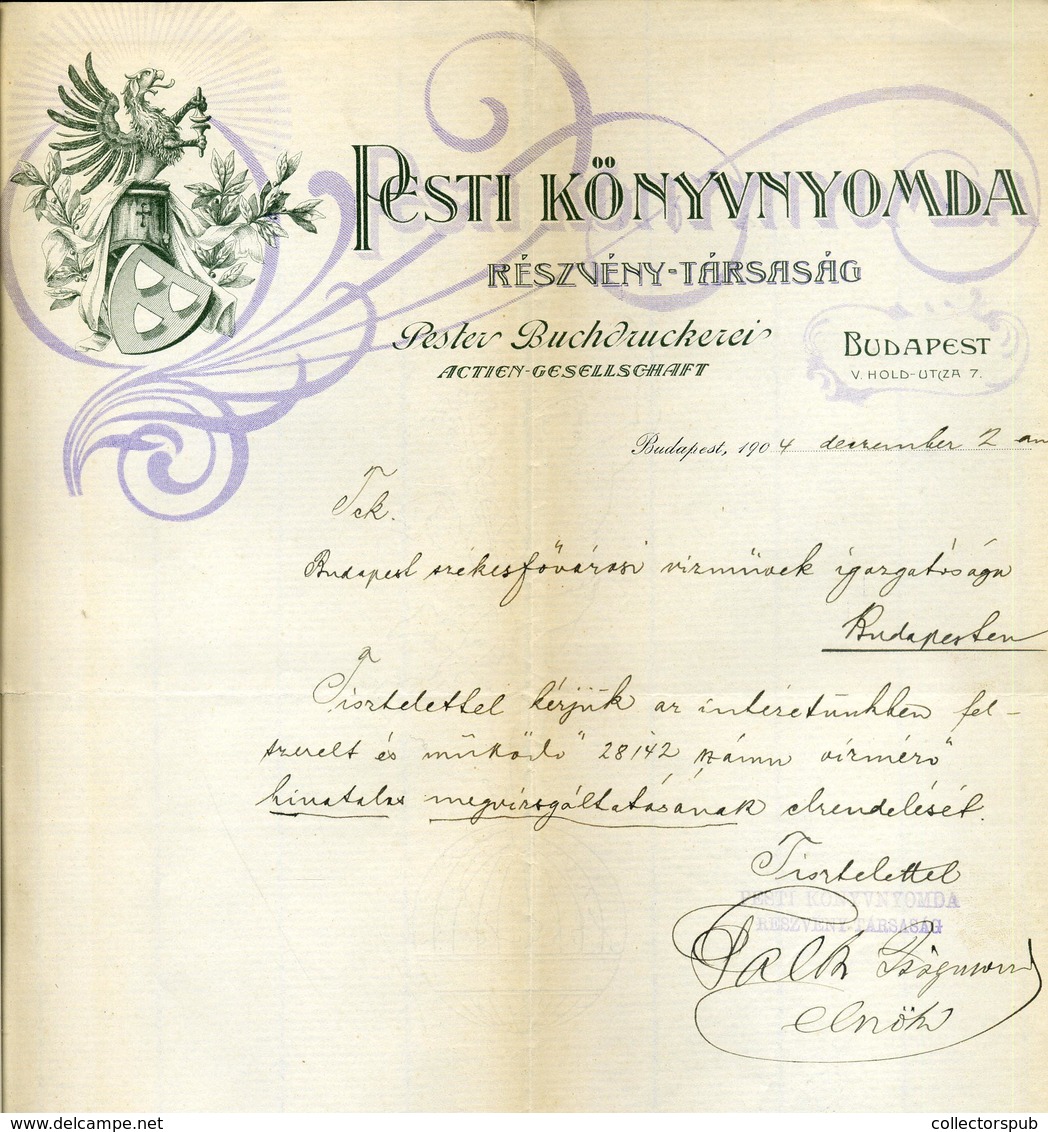 PESTI KÖNYVNYOMDA
RÉSZVÉNY-TÁRSASÁG
Pester Buchdruckerei
ACTIEN-GESELLSCHAFT
BUDAPEST
V. HOLD-UTCZA 7.
Budapest, 1904 deczember 2 án
Tek.
Budapest székesfővárosi vízművek igazgatósága
Budapesten
Tisztelettel kérjük az intézetünkben fel-
szerelt és működő 28142 számu vízmérő
hivatalos megvizsgáltatásának elrendelését.
Tisztelettel
PESTI KÖNYVNYOMDA
RÉSZVÉNY-TÁRSASÁG
Falk Zsigmond
elnök
www.delcampe.net
collectorspub